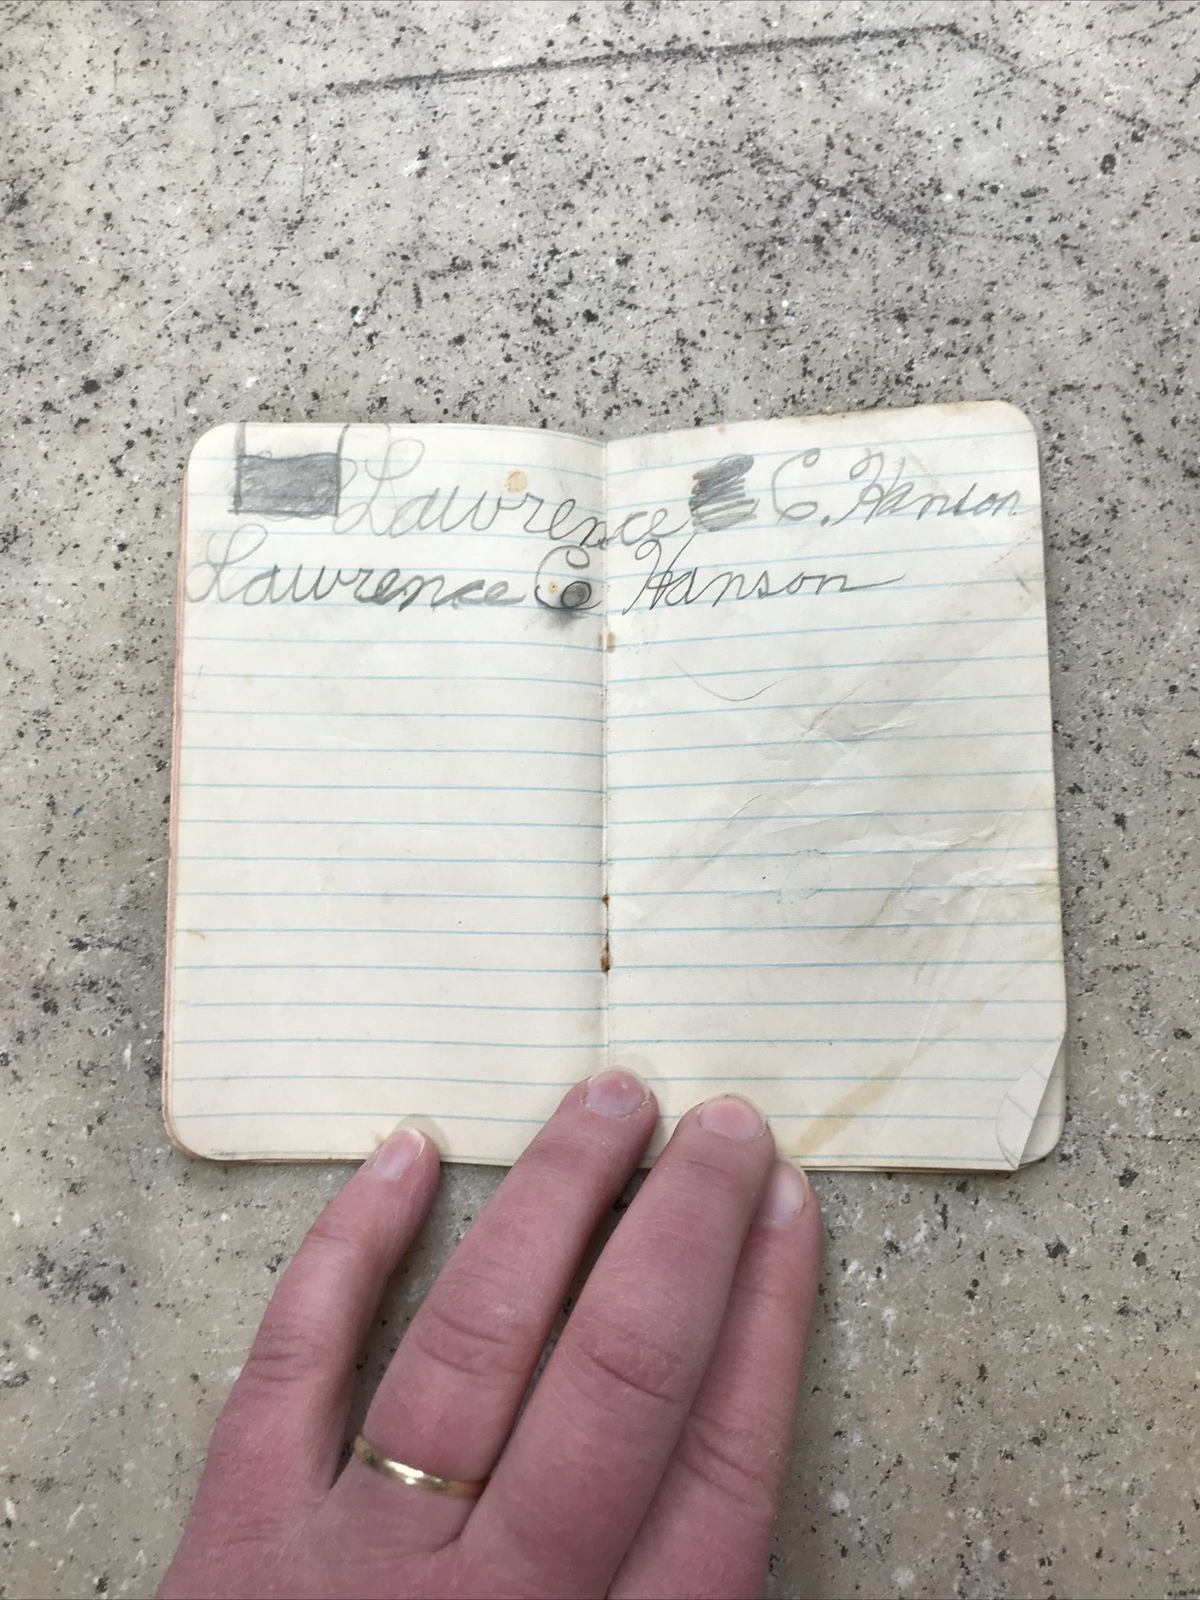 Lawrence C. Hanson
Lawrence C Hanson